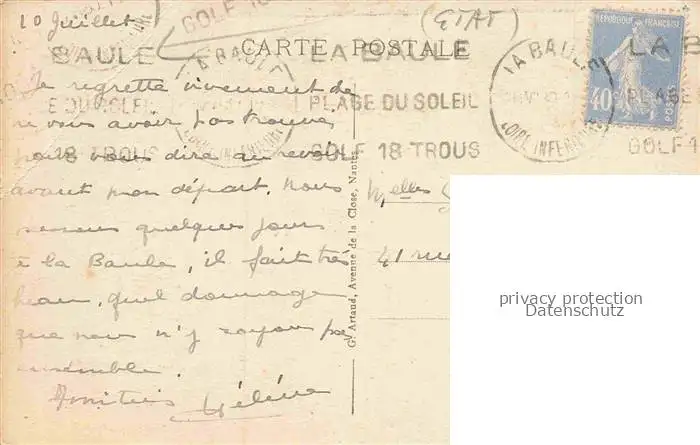 10 Juillet
GOLF 18
(ETAT)
CARTE POSTALE
BAULE
LA BAULE
LA B
E DU SOLEIL
PLAGE DU SOLEIL
PLAGE
18 TROUS
GOLF 18 TROUS
GOLF 1
LA BAULE
LOIRE INFERIEURE
LA BAULE
LOIRE INFERIEURE
REPUBLIQUE FRANÇAISE
40c
POSTES
Je regrette vivement de
ne vous avoir pas trouvées
pour vous dire au revoir
avant mon départ. Nous
sommes quelques jours
à la Baule, il fait très
beau, quel dommage
que nous n'y soyons pas
ensemble.
Amitiés Hélène
G. Artaud, Avenue de la Close, Nantes
Melles
41 rue
privacy protection
Datenschutz